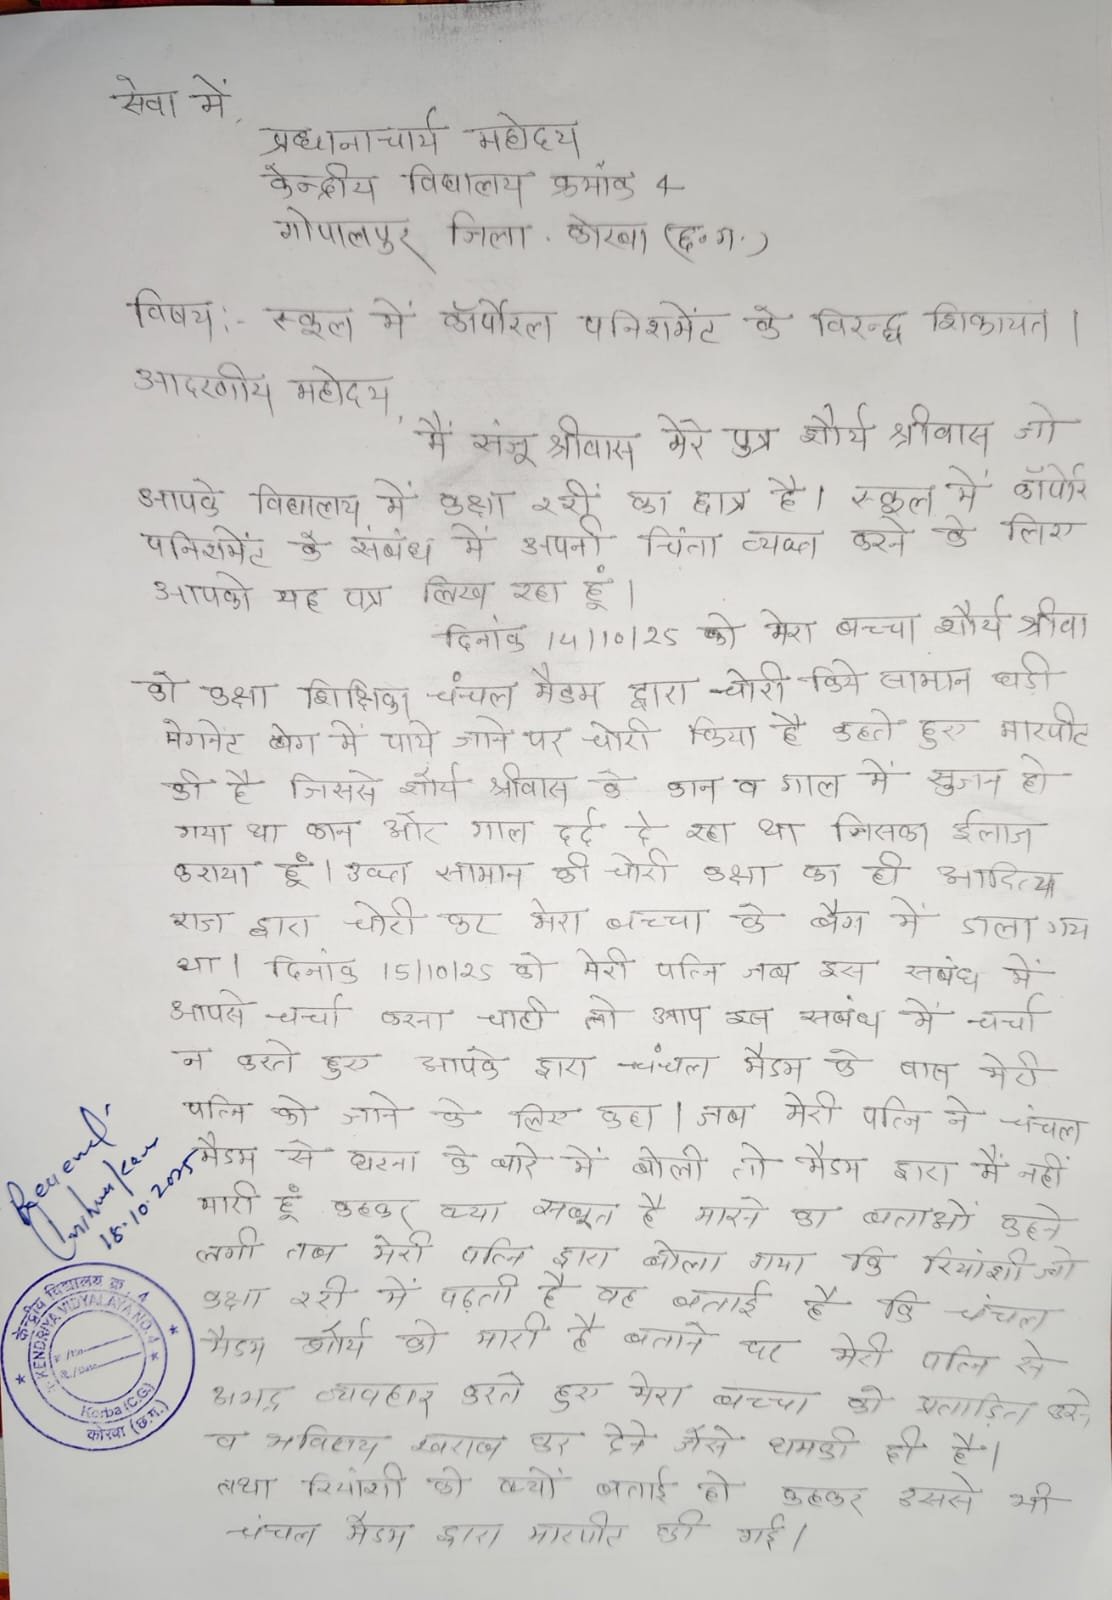 सेवा में,
प्रधानाचार्य महोदय
केन्द्रीय विद्यालय क्रमांक 4
गोपालपुर जिला. कोरबा (छ.ग.)
विषय:- स्कूल में कॉर्पोरल पनिशमेंट के विरुद्ध शिकायत।
आदरणीय महोदय,
मैं संजू श्रीवास मेरे पुत्र शौर्य श्रीवास जो
आपके विद्यालय में कक्षा 2री का छात्र है। स्कूल में कॉर्पोर
पनिशमेंट के संबंध में अपनी चिंता व्यक्त करने के लिए
आपको यह पत्र लिख रहा हूं।
दिनांक 14/10/25 को मेरा बच्चा शौर्य श्रीवा
को कक्षा शिक्षिका चंचल मैडम द्वारा चोरी किये सामान घड़ी
मेगनेट बेग में पाये जाने पर चोरी किया है कहते हुए मारपीट
की है जिससे शौर्य श्रीवास के कान व गाल में सुजन हो
गया था कान और गाल दर्द दे रहा था जिसका ईलाज
कराया हूं। उक्त सामान की चोरी कक्षा का ही आदित्य
राज द्वारा चोरी कर मेरा बच्चा के बैग में डाला गय
था। दिनांक 15/10/25 को मेरी पत्नि जब इस सबंध में
आपसे चर्चा करना चाही तो आप इस सबंध में चर्चा
न करते हुए आपके द्वारा चंचल मैडम के पास मेरी
पत्नि को जाने के लिए कहा। जब मेरी पत्नि ने चंचल
मैडम से घटना के बारे में बोली तो मैडम द्वारा मैं नहीं
मारी हूं कहकर क्या सबूत है मारने का बताओं कहने
लगी तब मेरी पत्नि द्वारा बोला गया कि रियांशी जो
कक्षा 2री में पढ़ती है वह बताई है कि चंचल
मैडम शौर्य को मारी है बताने पर मेरी पत्नि से
अभद्र व्यवहार करते हुए मेरा बच्चा को प्रताड़ित करने
व भविष्य खराब कर देने जैसे धमकी दी है।
तथा रियांशी को क्यों बताई हो कहकर उससे भी
चंचल मैडम द्वारा मारपीट की गई।
Received
18.10.2025
केन्द्रीय विद्यालय क्र. 4
KENDRIYA VIDYALAYA NO. 4
Korba (C.G.)
कोरबा (छ.ग.)